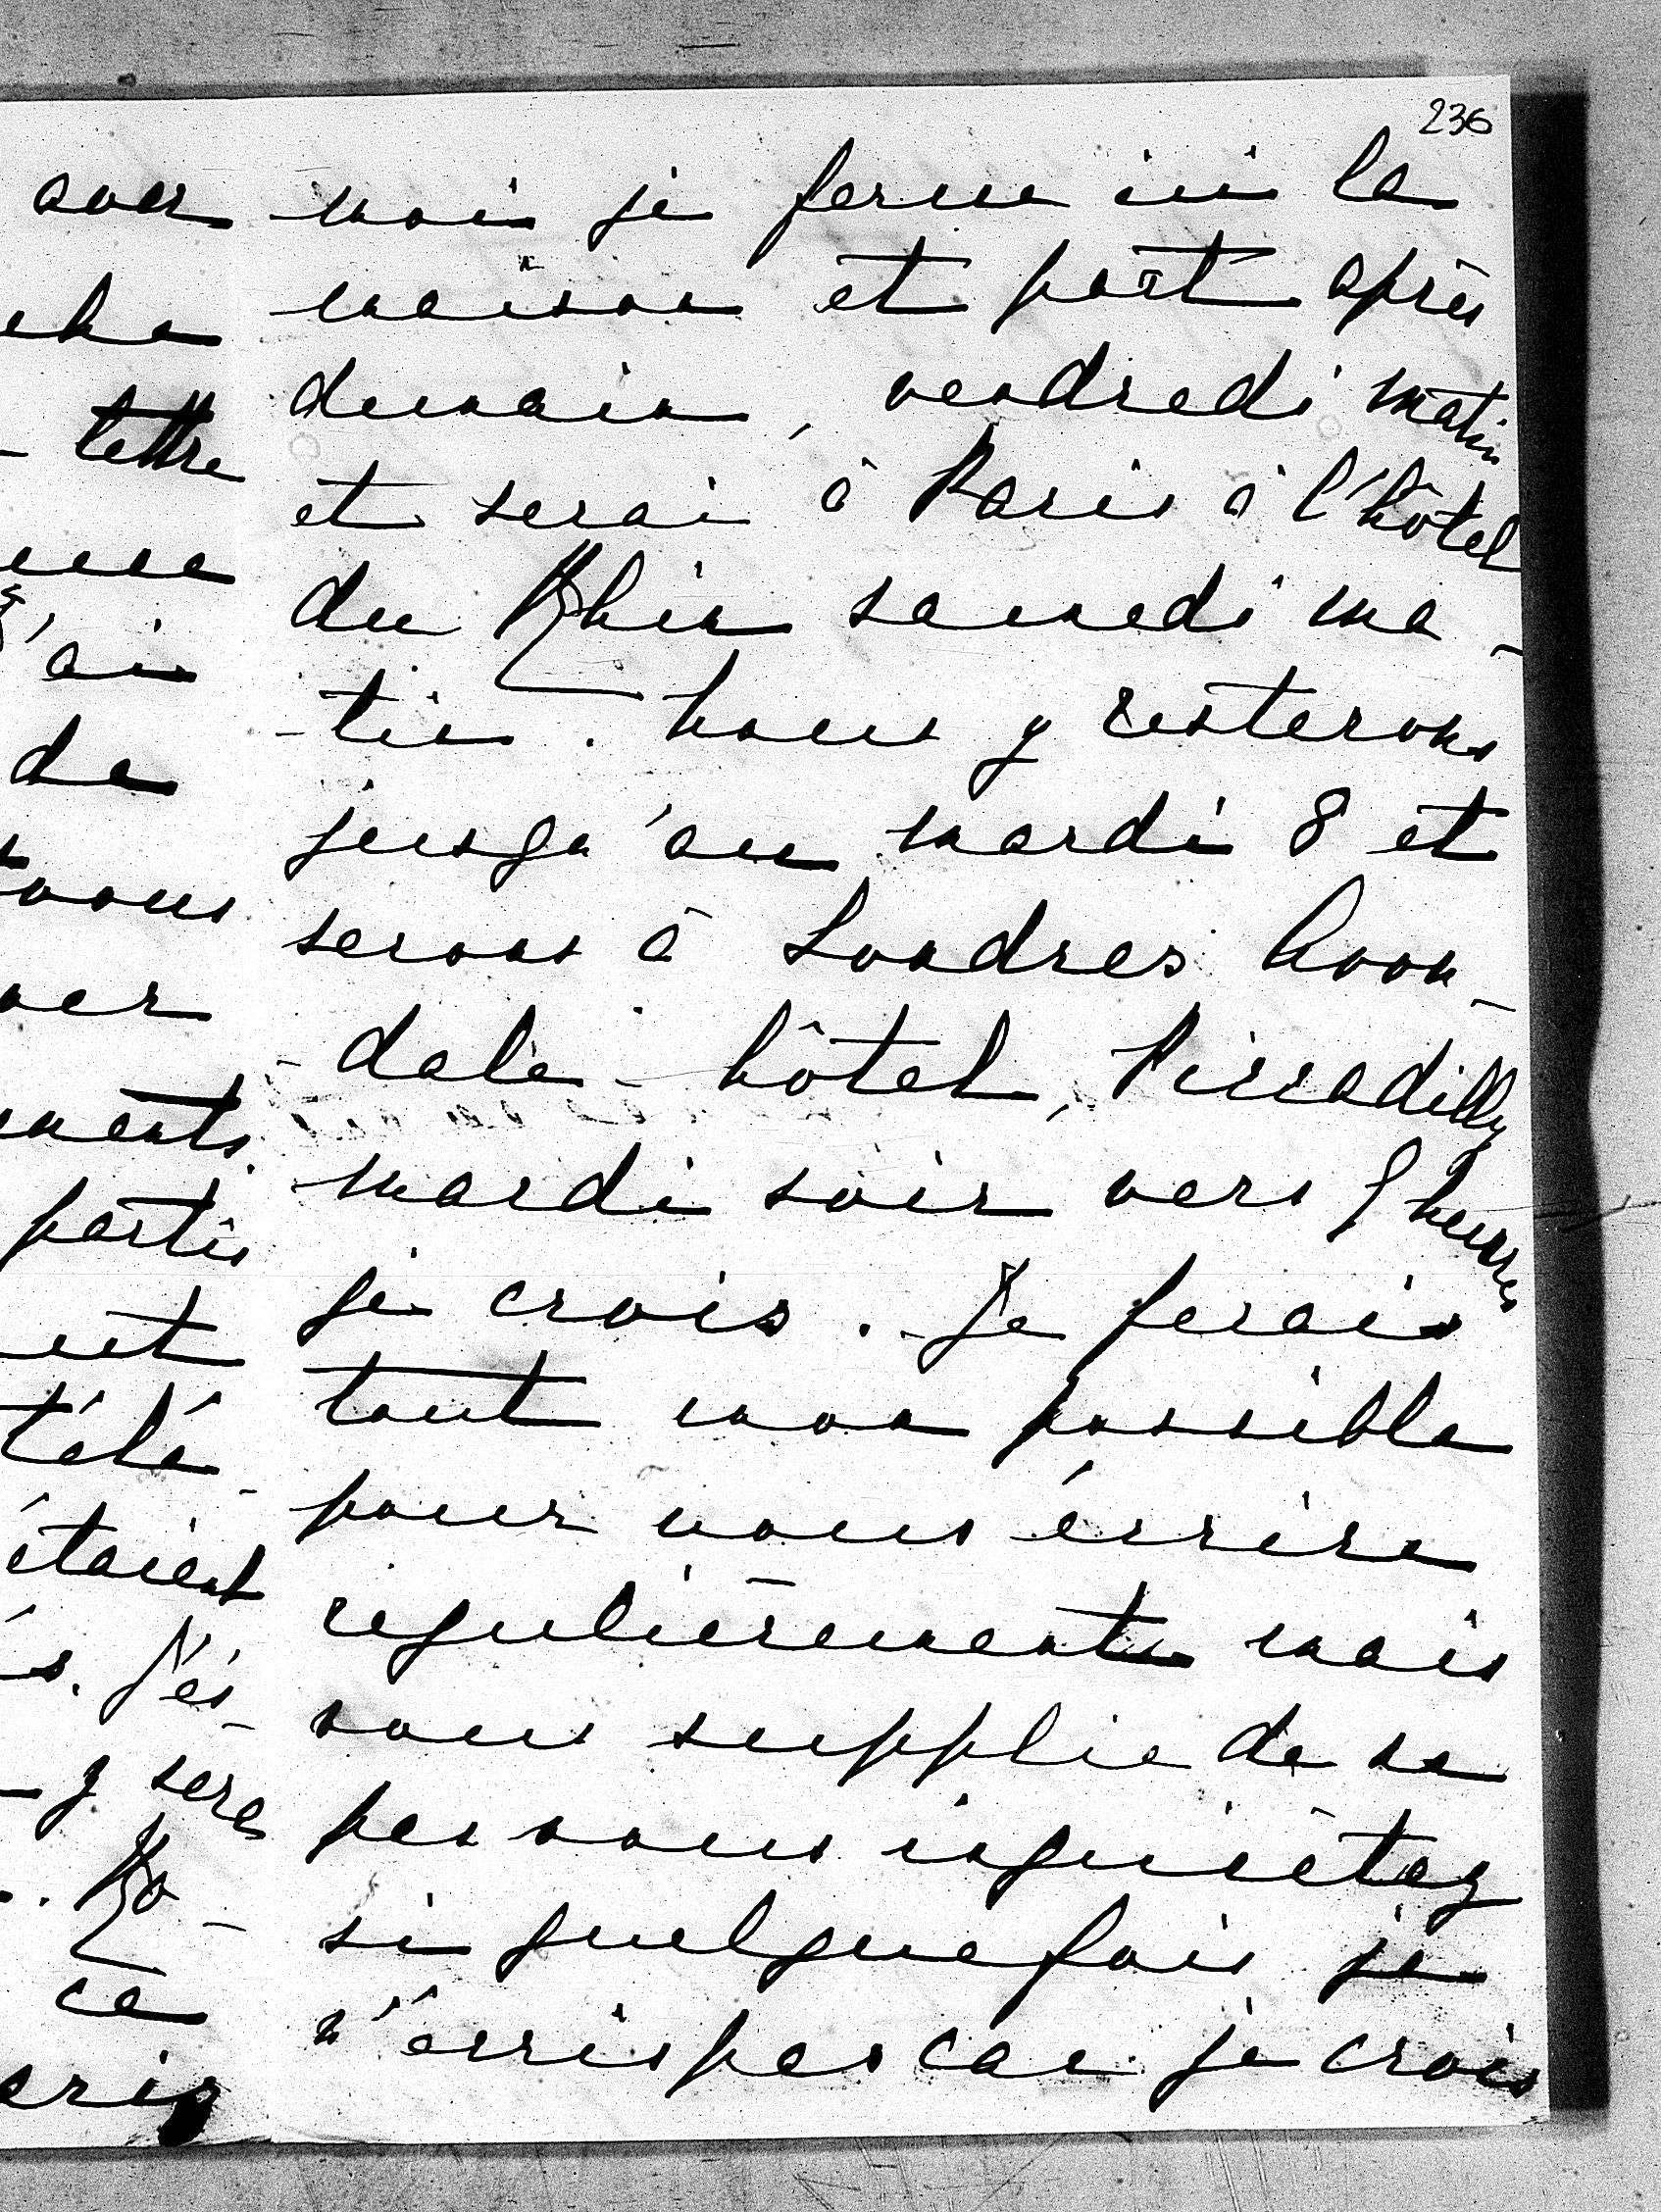 236
moi je ferme ici la
maison et part après
demain, vendredi matin
et serai à Paris à l'hôtel
du Rhin samedi ma-
-tin. Nous y resterons
jusqu'au mardi 8 et
serons à Londres
-dale-hôtel, Piccadilly
mardi soir vers heures
je crois. Je ferais
tout mon possible
pour vous écrire
regulièrement mais
vous supplie de ne
pas vous inquiètez
si quelque fois je
n'écris pas car je crois
avez
lettre
'ai
de
vous
partis
télé-
étaient
J'es-
y sera
Ro-
ce